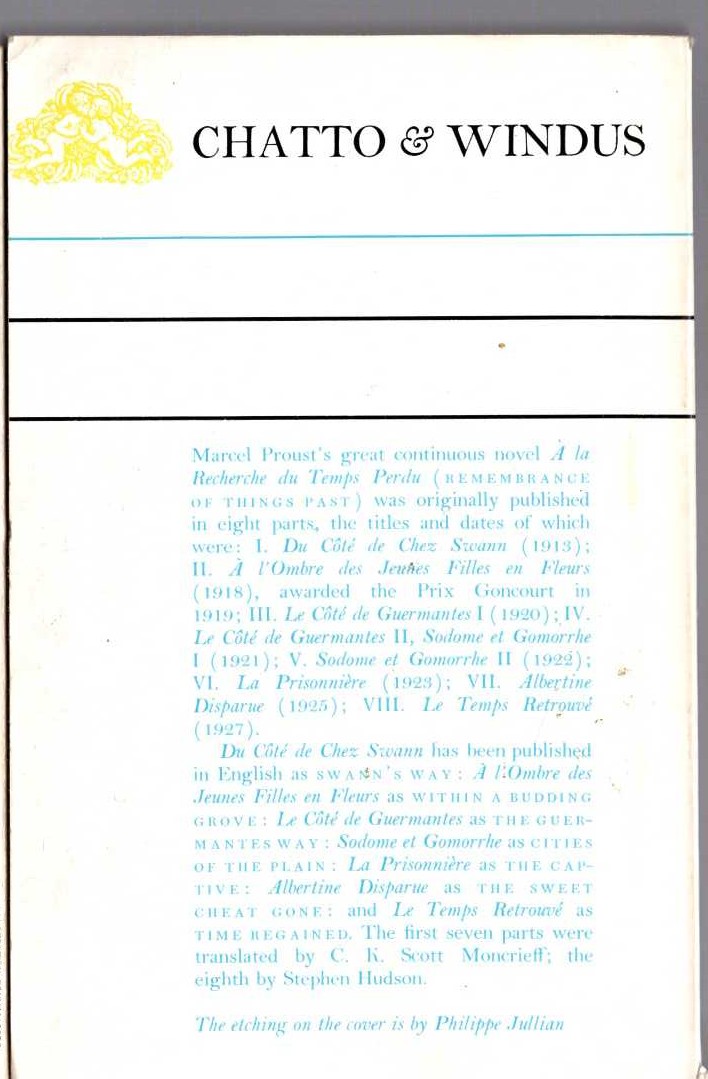 CHATTO & WINDUS
Marcel Proust's great continuous novel À la
Recherche du Temps Perdu (REMEMBRANCE
OF THINGS PAST) was originally published
in eight parts, the titles and dates of which
were: I. Du Côté de Chez Swann (1913);
II. À l'Ombre des Jeunes Filles en Fleurs
(1918), awarded the Prix Goncourt in
1919; III. Le Côté de Guermantes I (1920); IV.
Le Côté de Guermantes II, Sodome et Gomorrhe
I (1921); V. Sodome et Gomorrhe II (1922);
VI. La Prisonnière (1923); VII. Albertine
Disparue (1925); VIII. Le Temps Retrouvé
(1927).
Du Côté de Chez Swann has been published
in English as SWANN'S WAY: À l'Ombre des
Jeunes Filles en Fleurs as WITHIN A BUDDING
GROVE: Le Côté de Guermantes as THE GUER-
MANTES WAY: Sodome et Gomorrhe as CITIES
OF THE PLAIN: La Prisonnière as THE CAP-
TIVE: Albertine Disparue as THE SWEET
CHEAT GONE: and Le Temps Retrouvé as
TIME REGAINED. The first seven parts were
translated by C. K. Scott Moncrieff; the
eighth by Stephen Hudson.
The etching on the cover is by Philippe Jullian